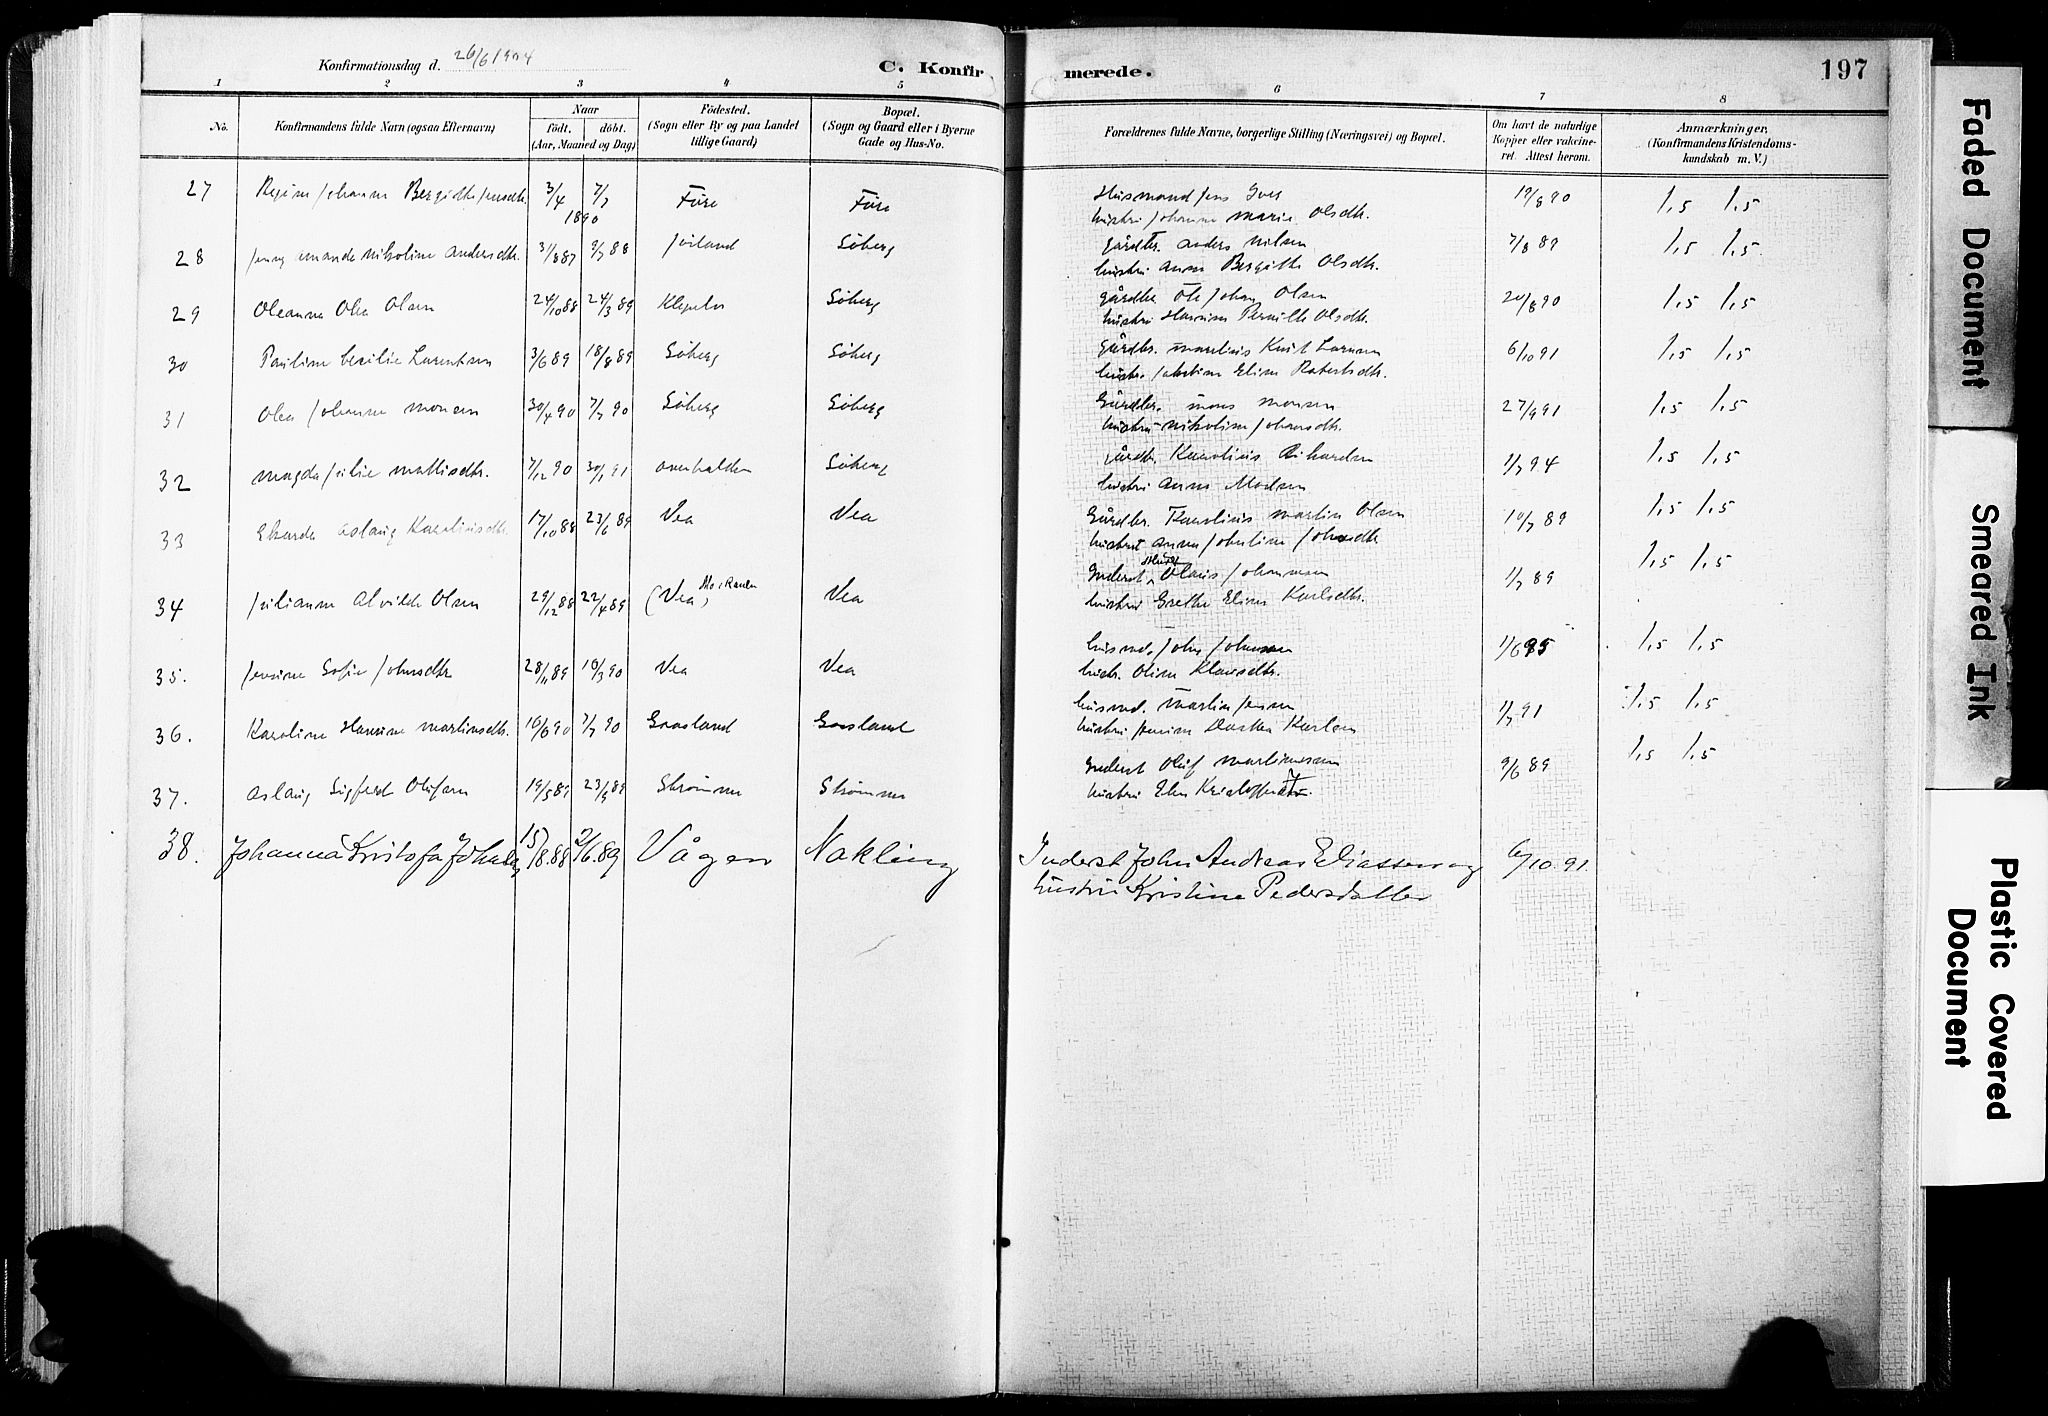 Konfirmationsdag d. 26/6 1904
C. Konfirmerede.
197
1 2 3 4 5 6 7 8
No.
Konfirmandens fulde Navn (ogsaa Efternavn)
Naar
födt. döbt.
(Aar, Maaned og Dag)
Födested.
(Sogn eller By og paa Landet
tillige Gaard)
Bopæl.
(Sogn og Gaard eller i Byerne
Gade og Hus-No.
Forældrenes fulde Navne, borgerlige Stilling (Næringsvei) og Bopæl.
Om havt de naturlige
Kopper eller vakcine-
ret. Attest herom.
Anmærkninger.
(Konfirmandens Kristendoms-
kundskab m. V.)
27 Johanna Bergitthe Jensdtr. 3/4 7/7 1890 Füre Füre Husmand Jens Iver 19/8 90 1,5 1,5
hustru Johanna Marie Olsdtr.
28 Jenny Amanda Nikoline Andersdtr. 31/8 87 9/7 88 Søberg gårdbr. Anders Nilsen 7/8 89 1,5 1,5
hustru Anna Bergitte Olsdtr.
29 Oleanna Olea Olsen 24/10 88 24/3 89 Søberg gårdbr. Ole Johan Olsen 20/8 90 1,5 1,5
hustru Pernille Olsdtr.
30 Pauline Cecilie Larentsen 3/6 89 18/8 89 Søberg Søberg gårdbr. 6/10 91 1,5 1,5
Eline Robertsdtr.
31 Olea Johanna Monsen 30/4 90 7/7 90 Søberg Søberg Gårdbr. Mons Monsen 27/9 91 1,5 1,5
hustru Nikoline Johansdtr.
32 Magda Julie 7/12 90 30/1 91 Overhalden Søberg gårdbr. Karolius Rikardsen 1/7 94 1,5 1,5
hustru Anna
33 Aslaug Karoliusdtr. 17/10 88 23/6 89 Vea Vea Gårdbr. Karolius Martin Olsen 10/7 89 1,5 1,5
hustru Anna
34 Julianna Alvilde Olsen 29/12 88 22/4 89 (Vea) Mo i Ranen Vea Inderst Olaus Johannesen 1/7 89 1,5 1,5
hustru Grethe Eline Karlsdtr.
35. Jensine Sofie Johnsdtr. 28/11 89 16/3 90 Vea Vea husmd. John Johnsen 1/6 95 1,5 1,5
hustr. Oline Klausdtr.
36. Karoline Hansine Martinsdtr. 10/6 90 7/7 90 Gaasland Gaasland husmd. Martin Jensen 1/7 91 1,5 1,5
hustru Jensine Dorthea Karlsen
37. Aslaug Sigfred Olufsen 19/5 89 23/9 89 Strømmen Strømmen Inderst Oluf Martinussen 9/6 89 1,5 1,5
hustru Elen
38. Johanna Kristofa 15/8.88 2/6.89 Vågen Nakling Inderst John Andreas Eliassen og 6/10.91.
hustru Kristine Pedersdatter
Faded Document
Smeared Ink
Plastic Covered
Document